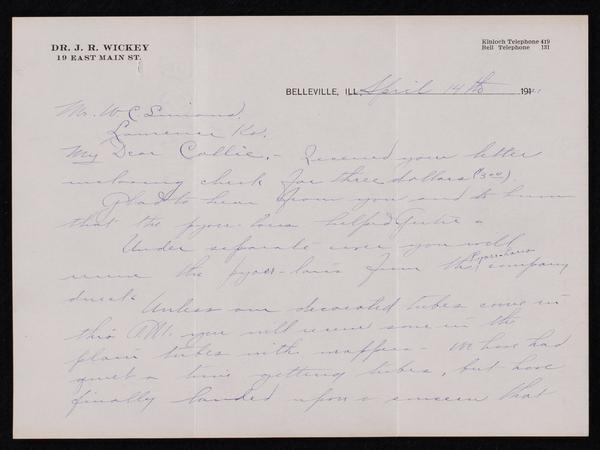 DR. J. R. WICKEY
19 EAST MAIN ST.
Kinloch Telephone 419
Bell Telephone 131
BELLEVILLE, ILL. April 14th 191
Mr. W C Simons.
Lawrence Ks.
My Dear Collie, - Received your letter
inclosing check for three dollars ($3.00).
Glad to hear from you and to know
that the pyorr-lavis helped Gertie -
Under separate cover you will
receive the pyorr-lavis from the Pyorr-lavis company
direct.
Unless our decorated tubes come in
this P.M. you will receive some in the
plain tubes with wrappers - We have had
quiet a time getting tubes, but have
finally landed upon a concern that